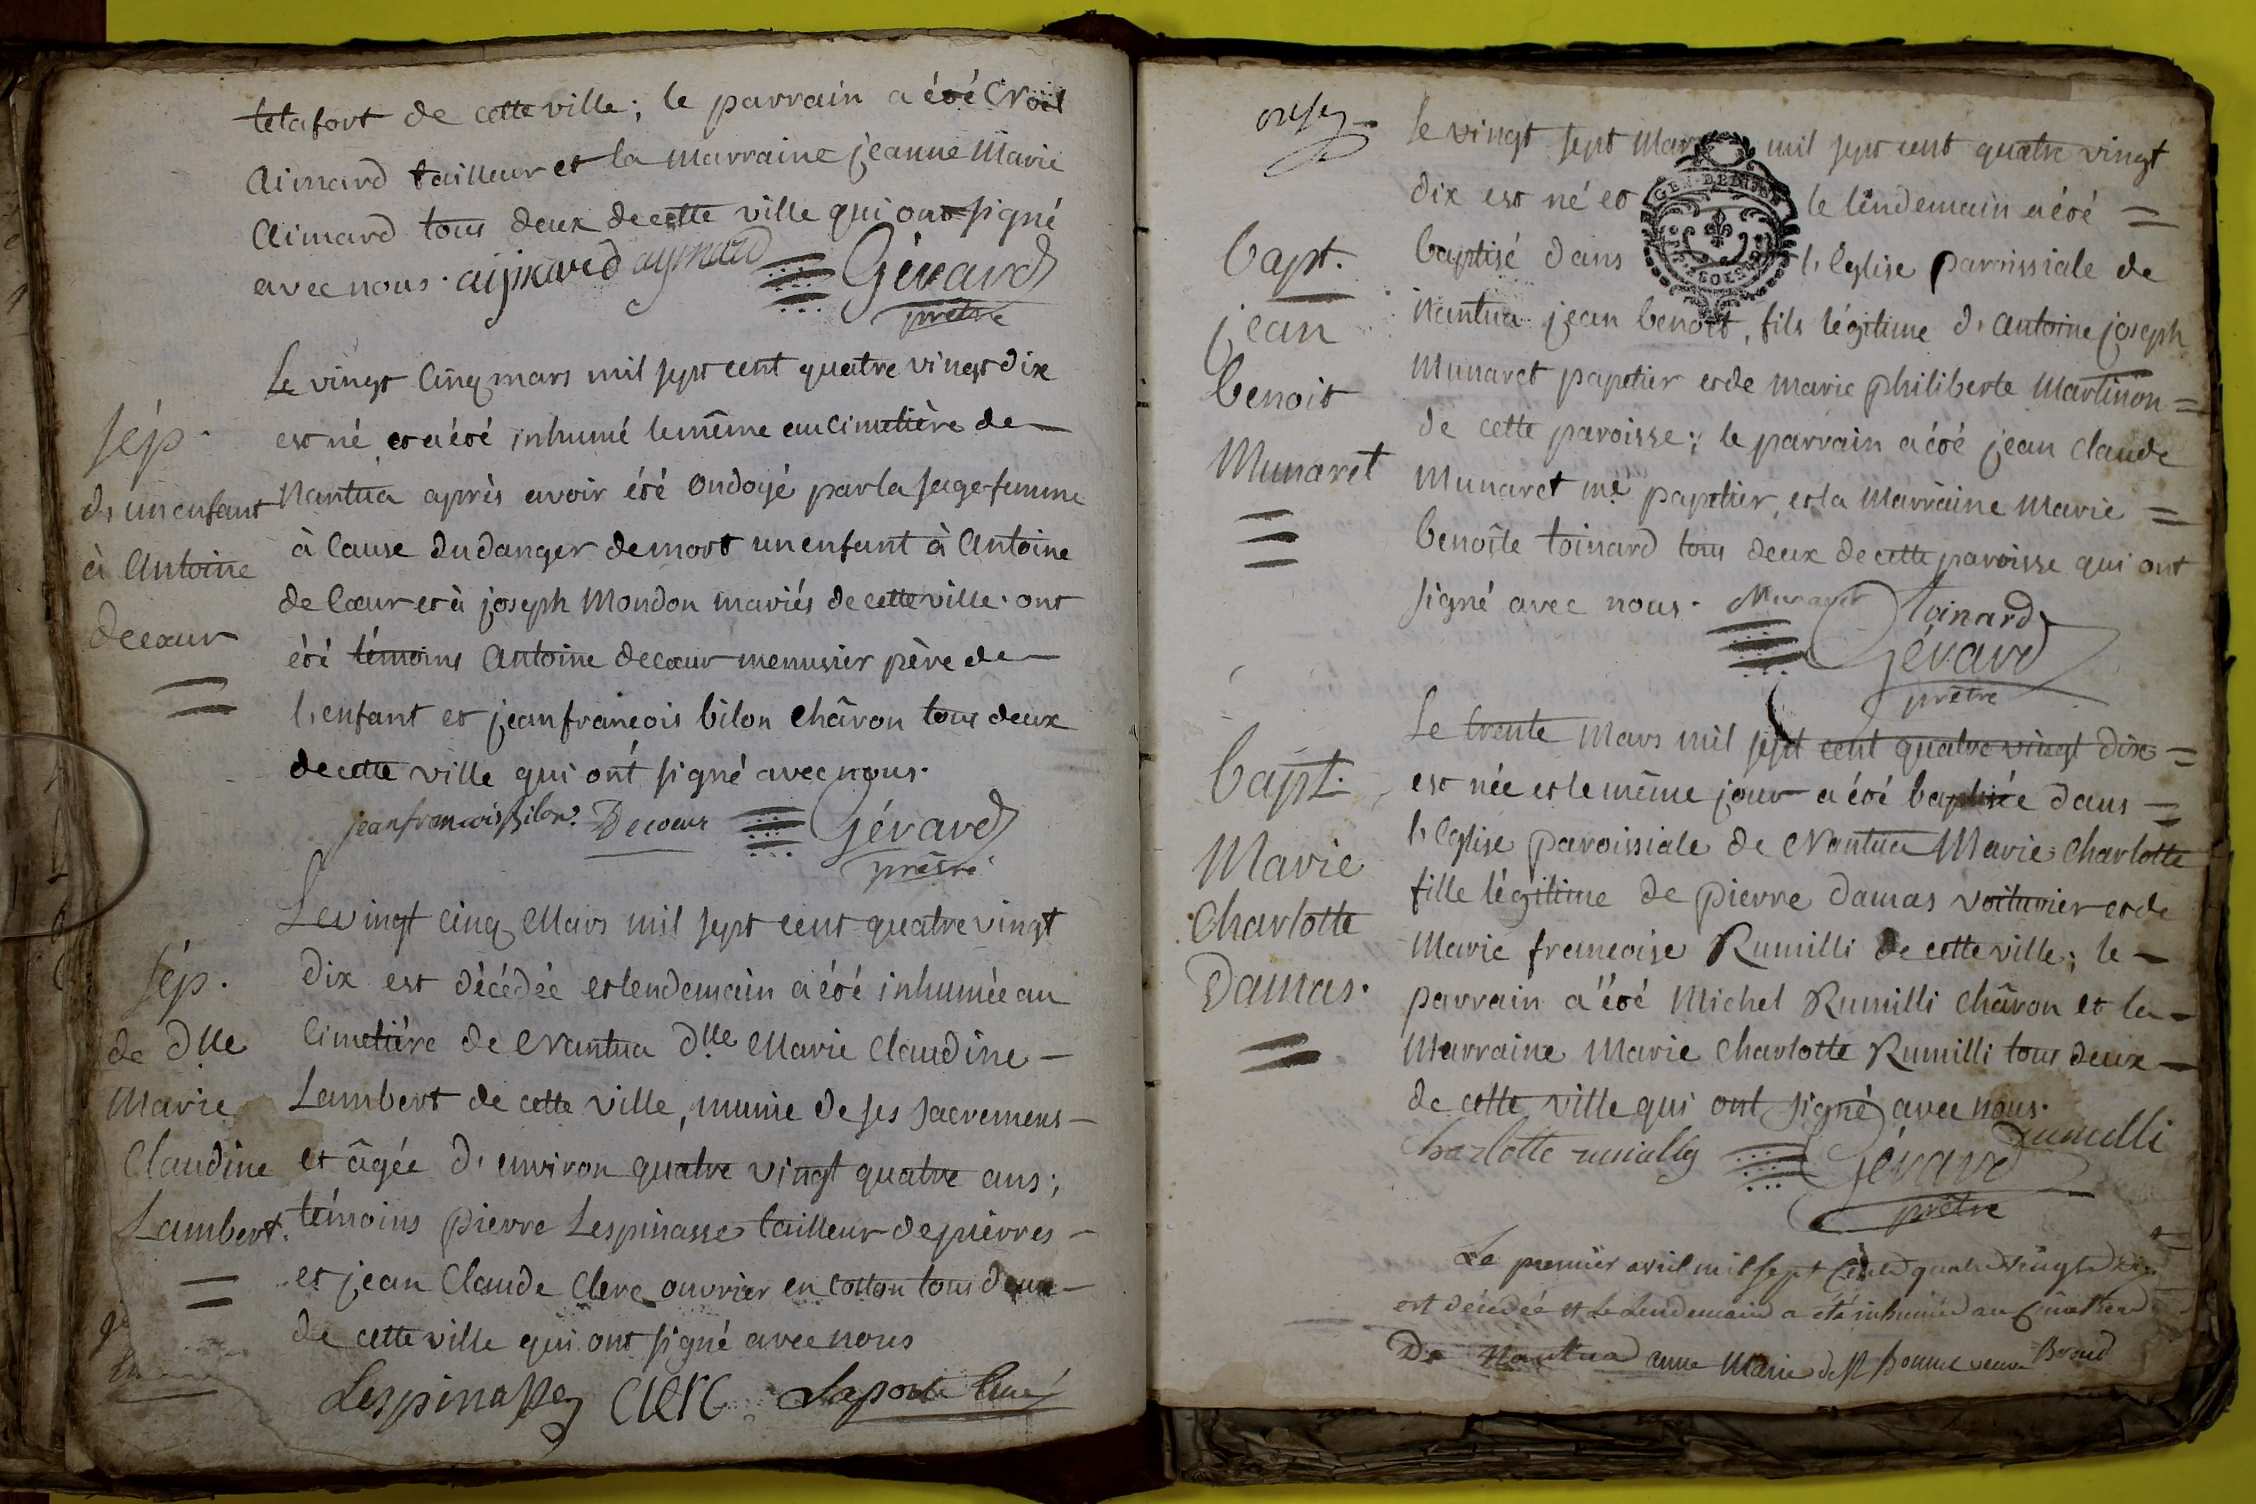 tetafort de cette ville; le parrain a été Noël
Aimard tailleur et la marraine jeanne Marie
Aimard tous deux de cette ville qui ont signé
avec nous. aymard aymard Gérard
prêtre
sép.
d'un enfant
à Antoine
decœur
Le vingt cinq mars mil sept cent quatre vingt dix
est né et a été inhumé le même au cimetière de
Nantua après avoir été ondoyé par la sage-femme
à cause du danger de mort un enfant à Antoine
de Cœur et à joseph Mondon mariés de cette ville. ont
été témoins Antoine decœur menusier père de
l'enfant et jean francois bilon châron tous deux
de cette ville qui ont signé avec nous.
jean francois bilon. Decoeur Gérard
prêtre
sép.
de dlle
Marie
Claudine
Lambert.
Le vingt cinq Mars mil sept cent quatre vingt
dix est décédée et lendemain a été inhumée au
Cimetière de Nantua dlle Marie Claudine
Lambert de cette ville, munie de ses sacremens
et âgée d'environ quatre vingt quatre ans;
témoins pierre Lespinasse tailleur de pierres
et jean Claude Clerc ouvrier en cotton tous deux
de cette ville qui ont signé avec nous
Lespinasse Clerc Laporte Curé
onze
bapt.
jean
benoit
Munaret
Le vingt sept Mars mil sept cent quatre vingt
dix est né et le lendemain a été
baptisé dans l'Eglise paroissiale de
Nantua jean benoit, fils légitime d'antoine joseph
Munaret papetier et de marie philiberte Martinon
de cette paroisse; le parrain a été jean claude
Munaret me papetier, et la Marraine Marie
benoîte toinard tous deux de cette paroisse qui ont
signé avec nous. Munaret toinard
Gérard
prêtre
GEN. DE
bapt.
Marie
Charlotte
Damas.
Le trente Mars mil sept cent quatre vingt dix
est née et le même jour a été baptisée dans
l'Eglise paroissiale de Nantua Marie Charlotte
fille légitime de pierre damas voiturier et de
Marie francoise Rumilli de cette ville; le
parrain a été Michel Rumilli châron et la
Marraine Marie Charlotte Rumilli tous deux
de cette ville qui ont signé avec nous.
Charlotte rumilly Gérard rumilli
prêtre
Le premier avril mil sept Cent quatre vingt dix
est décédée et le Lendemain a été inhumée au Cimetiere
De Nantua anne Marie de st bonnet veuve